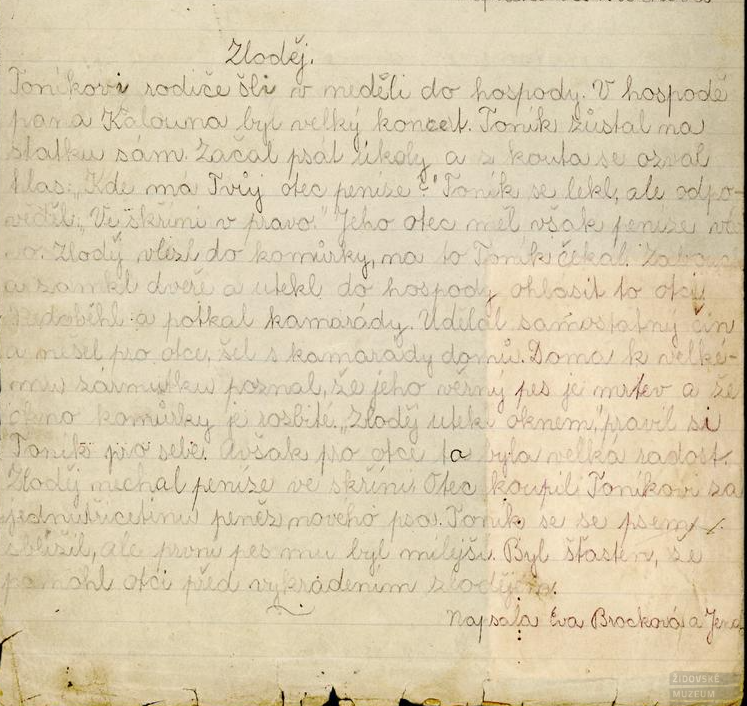 Zloděj.
Toníkovi rodiče šli v neděli do hospody. V hospodě
pana Kalouna byl velký koncert. Toník zůstal na
statku sám. Začal psát úkoly a z kouta se ozval
hlas: „Kde má Tvůj otec peníze?" Toník se lekl, ale odpo-
věděl: „Ve skříni v pravo." Jeho otec měl však peníze
Zloděj vlezl do komůrky, na to Toník čekal.
a zamkl dveře a utekl do hospody ohlásit to otci.
Nedoběhl a potkal kamarády. Udělal samostatný čin
a nešel pro otce, šel s kamarády domů. Doma k velké-
mu zármutku poznal, že jeho věrný pes je mrtev a že
okno komůrky je rozbité. „Zloděj utekl oknem," pravil si
Toník pro sebe. Avšak pro otce to byla velká radost.
Zloděj nechal peníze ve skříni. Otec koupil Toníkovi za
jednu třicetinu peněz nového psa. Toník se se psem
sblížil, ale první pes mu byl milejší. Byl šťasten, že
pomohl otci před vykradením zlodějem.
Napsala Eva Brocková a
ŽIDOVSKÉ
MUZEUM